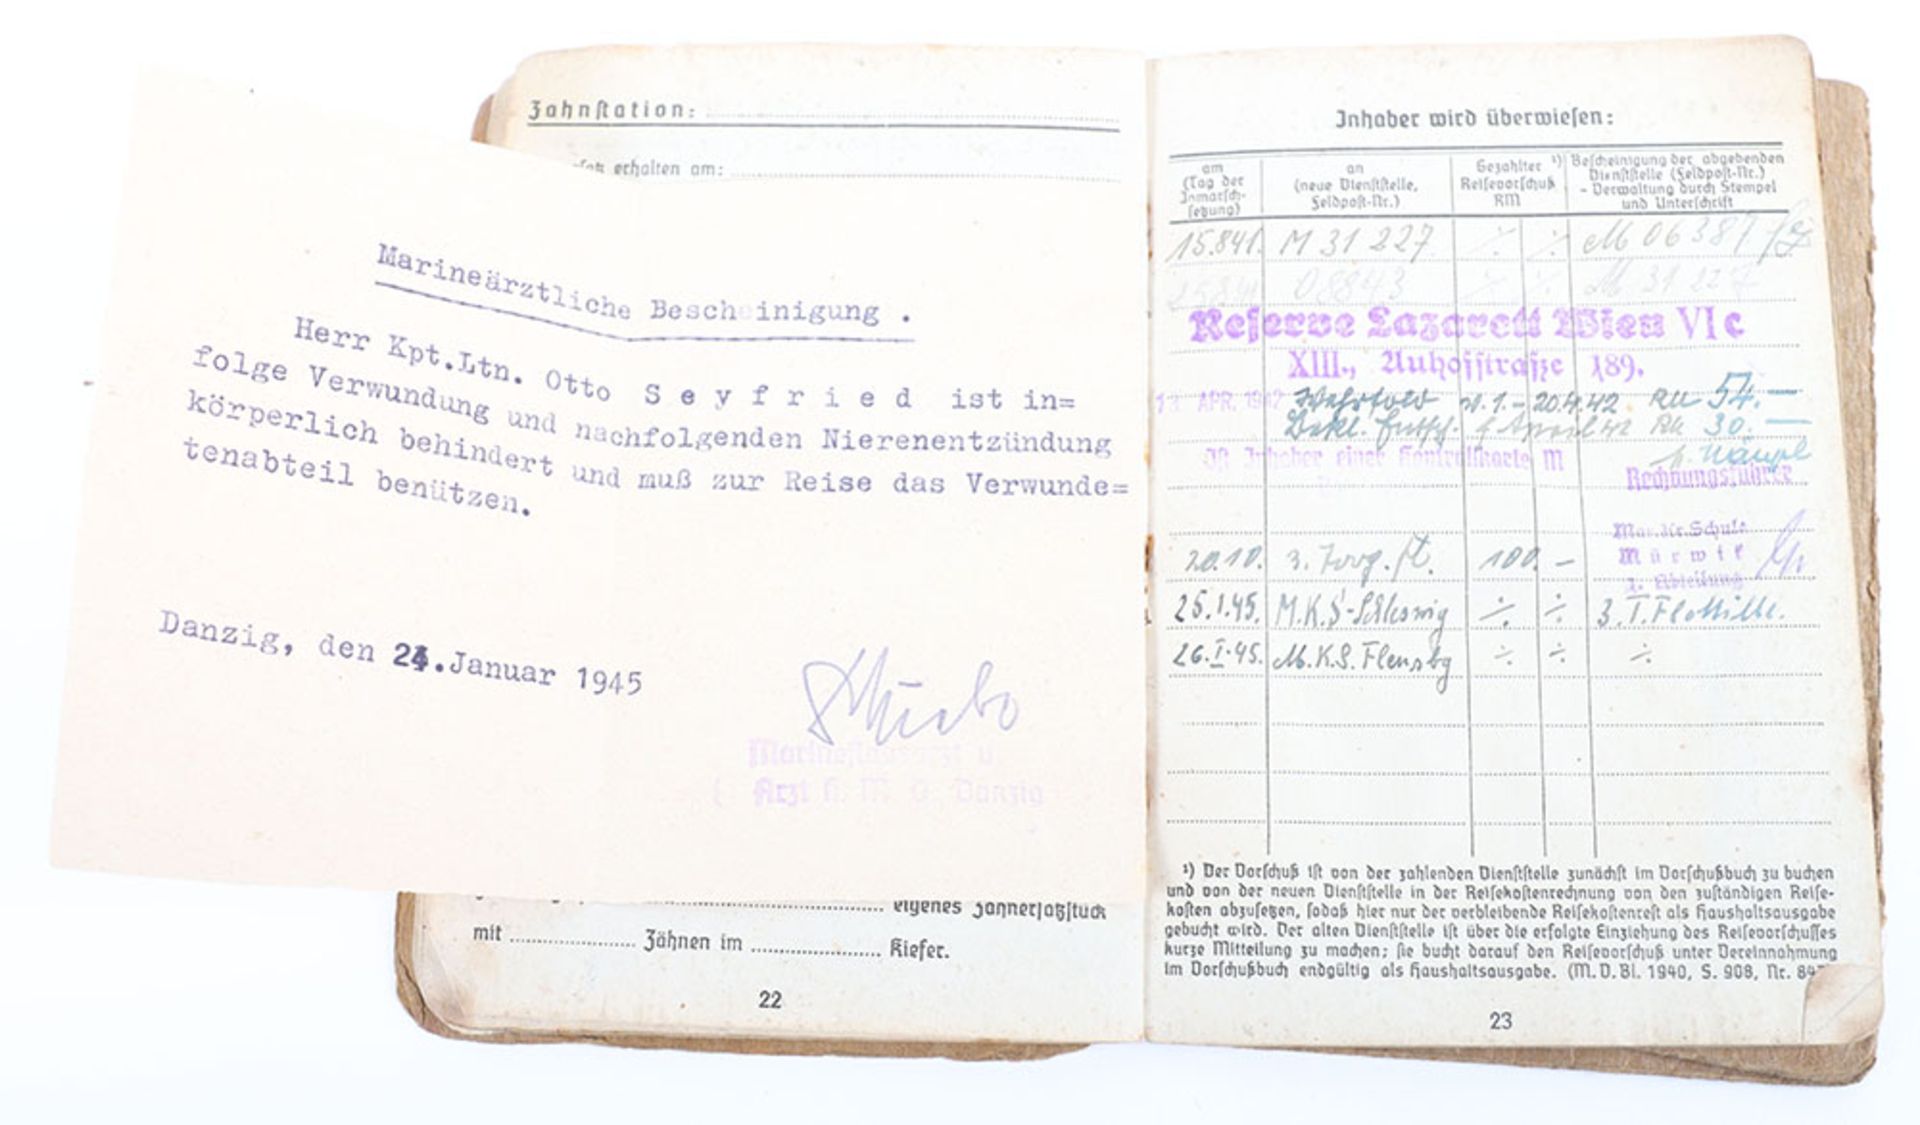 Zahnstation:
erhalten am:
Marineärztliche Bescheinigung .
Herr Kpt.Ltn. Otto S e y f r i e d ist in=
folge Verwundung und nachfolgenden Nierenentzündung
körperlich behindert und muß zur Reise das Verwunde=
tenabteil benützen.
Danzig, den 24.Januar 1945
Arzt Danzig
eigenes Zahnersatzstück
mit ........ Zähnen im ........ Kiefer.
22
Inhaber wird überwiesen:
am (Tag der Inmarsch- setzung)
an (neue Dienststelle, Feldpost-Nr.)
Gezahlter ¹) Reisevorschuß RM
Bescheinigung der abgebenden Dienststelle (Feldpost-Nr.) - Verwaltung durch Stempel und Unterschrift
15.8.41. M 31 227 ÷ ÷ M 06 387
25.8.41 08843 ÷ ÷ M 31 227
Reserve Lazarett Wien VI c
XIII., Auhofstraße 189.
13. APR. 1942 Wehrsold v. 1.-20.4.42 RM 54.—
Bekl. Entsch. f. April 42 RM 30.—
Ist Inhaber einer Kontrollkarte M
Rechnungsführer
Mar.Kr.Schule
Mürwik
1. Abteilung
20.10. 100.-
25.1.45. M.K.S-Schleswig ÷ ÷ 3. T.Flottille.
26.I.45. M.K.S. Flensbg ÷ ÷ ÷
¹) Der Vorschuß ist von der zahlenden Dienststelle zunächst im Vorschußbuch zu buchen
und von der neuen Dienststelle in der Reisekostenrechnung von den zuständigen Reise-
kosten abzusetzen, sodaß hier nur der verbleibende Reisekostenrest als Haushaltsausgabe
gebucht wird. Der alten Dienststelle ist über die erfolgte Einziehung des Reisevorschusses
kurze Mitteilung zu machen; sie bucht darauf den Reisevorschuß unter Vereinnahmung
im Vorschußbuch endgültig als Haushaltsausgabe. (M. V. Bl. 1940, S. 908, Nr.
23